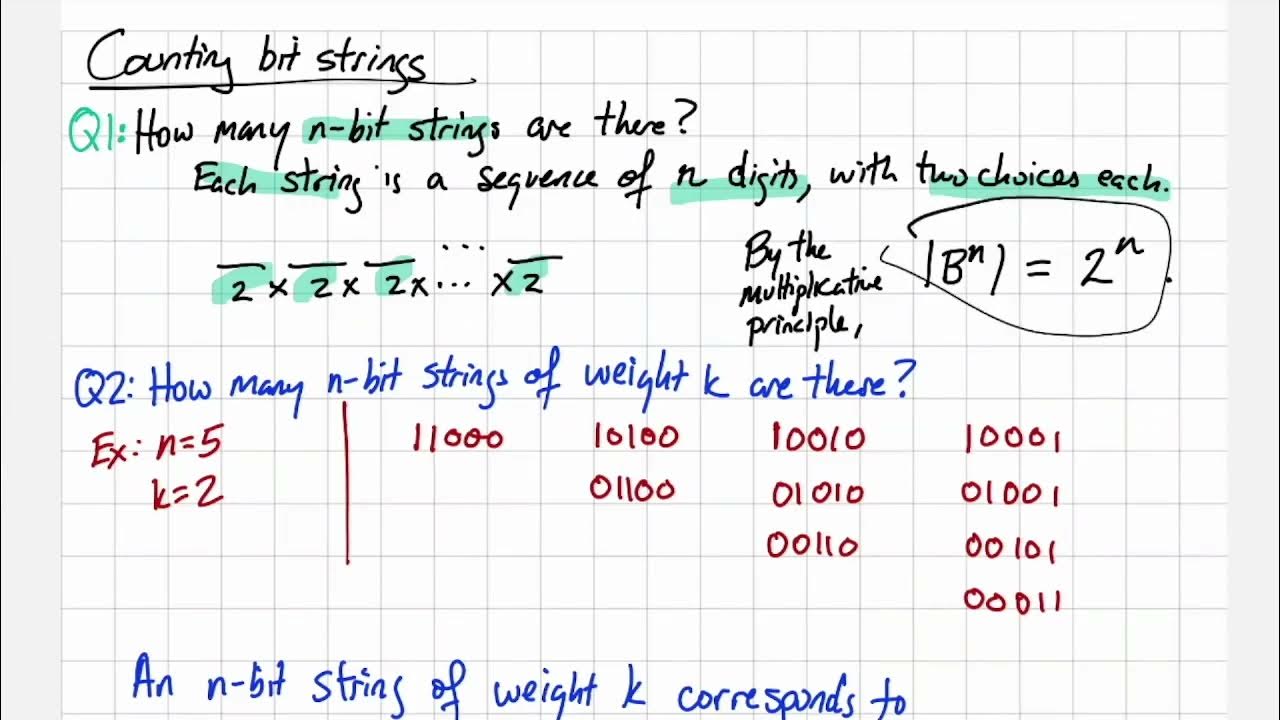 Counting bit strings
Q1: How many n-bit strings are there?
Each string is a sequence of n digits, with two choices each.
2 x 2 x 2 x ... x 2
By the
multiplicative
principle,
|Bⁿ| = 2ⁿ.
Q2: How many n-bit strings of weight k are there?
Ex: n=5
k=2
11000 10100 10010 10001
01100 01010 01001
00110 00101
00011
An n-bit string of weight k corresponds to